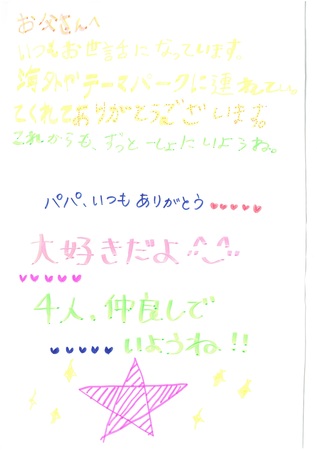 お父さんへ
いつもお世話になっています。
海外やテーマパークに連れてい
てくれてありがとうございます。
これからも、ずっと一しょにいようね。
パパ、いつもありがとう
大好きだよ
4人、仲良しで
いようね!!